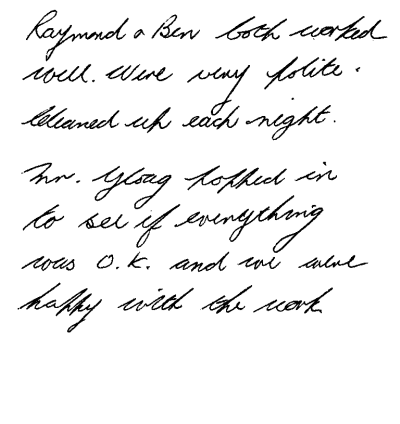 Raymond & Ben both worked
well. Were very polite.
Cleaned up each night.
Mr. Gloag popped in
to see if everything
was O.K. and we were
happy with the work